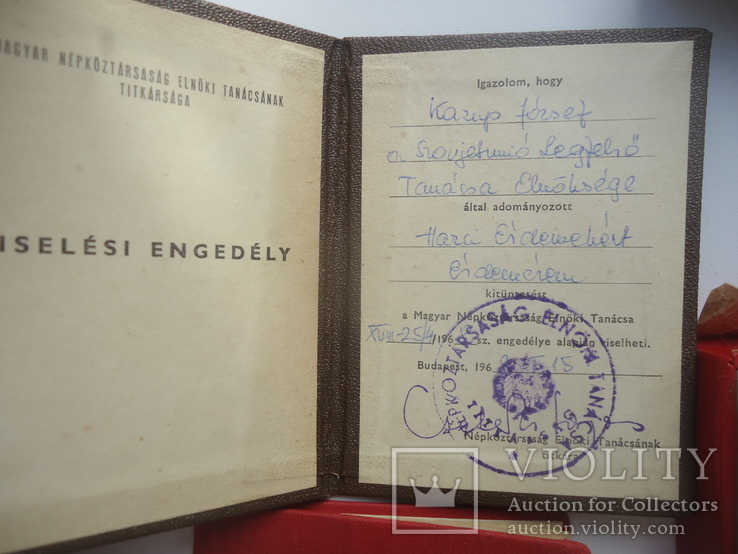 MAGYAR NÉPKÖZTÁRSASÁG ELNÖKI TANÁCSÁNAK
TITKÁRSÁGA
ISELÉSI ENGEDÉLY
Igazolom, hogy
Karup József
a Szovjetunió Legfelső
Tanácsa Elnöksége
által adományozott
Harci Érdemekért
Érdemérem
kitüntetést
a Magyar Népköztársaság Elnöki Tanácsa
XVIII-25/4/196 sz. engedélye alapján viselheti.
Budapest, 196 15
NÉPKÖZTÁRSASÁG ELNÖKI TANÁCS
Népköztársaság Elnöki Tanácsának
titkára
VIOLITY
Auction for Collectors
auction.violity.com